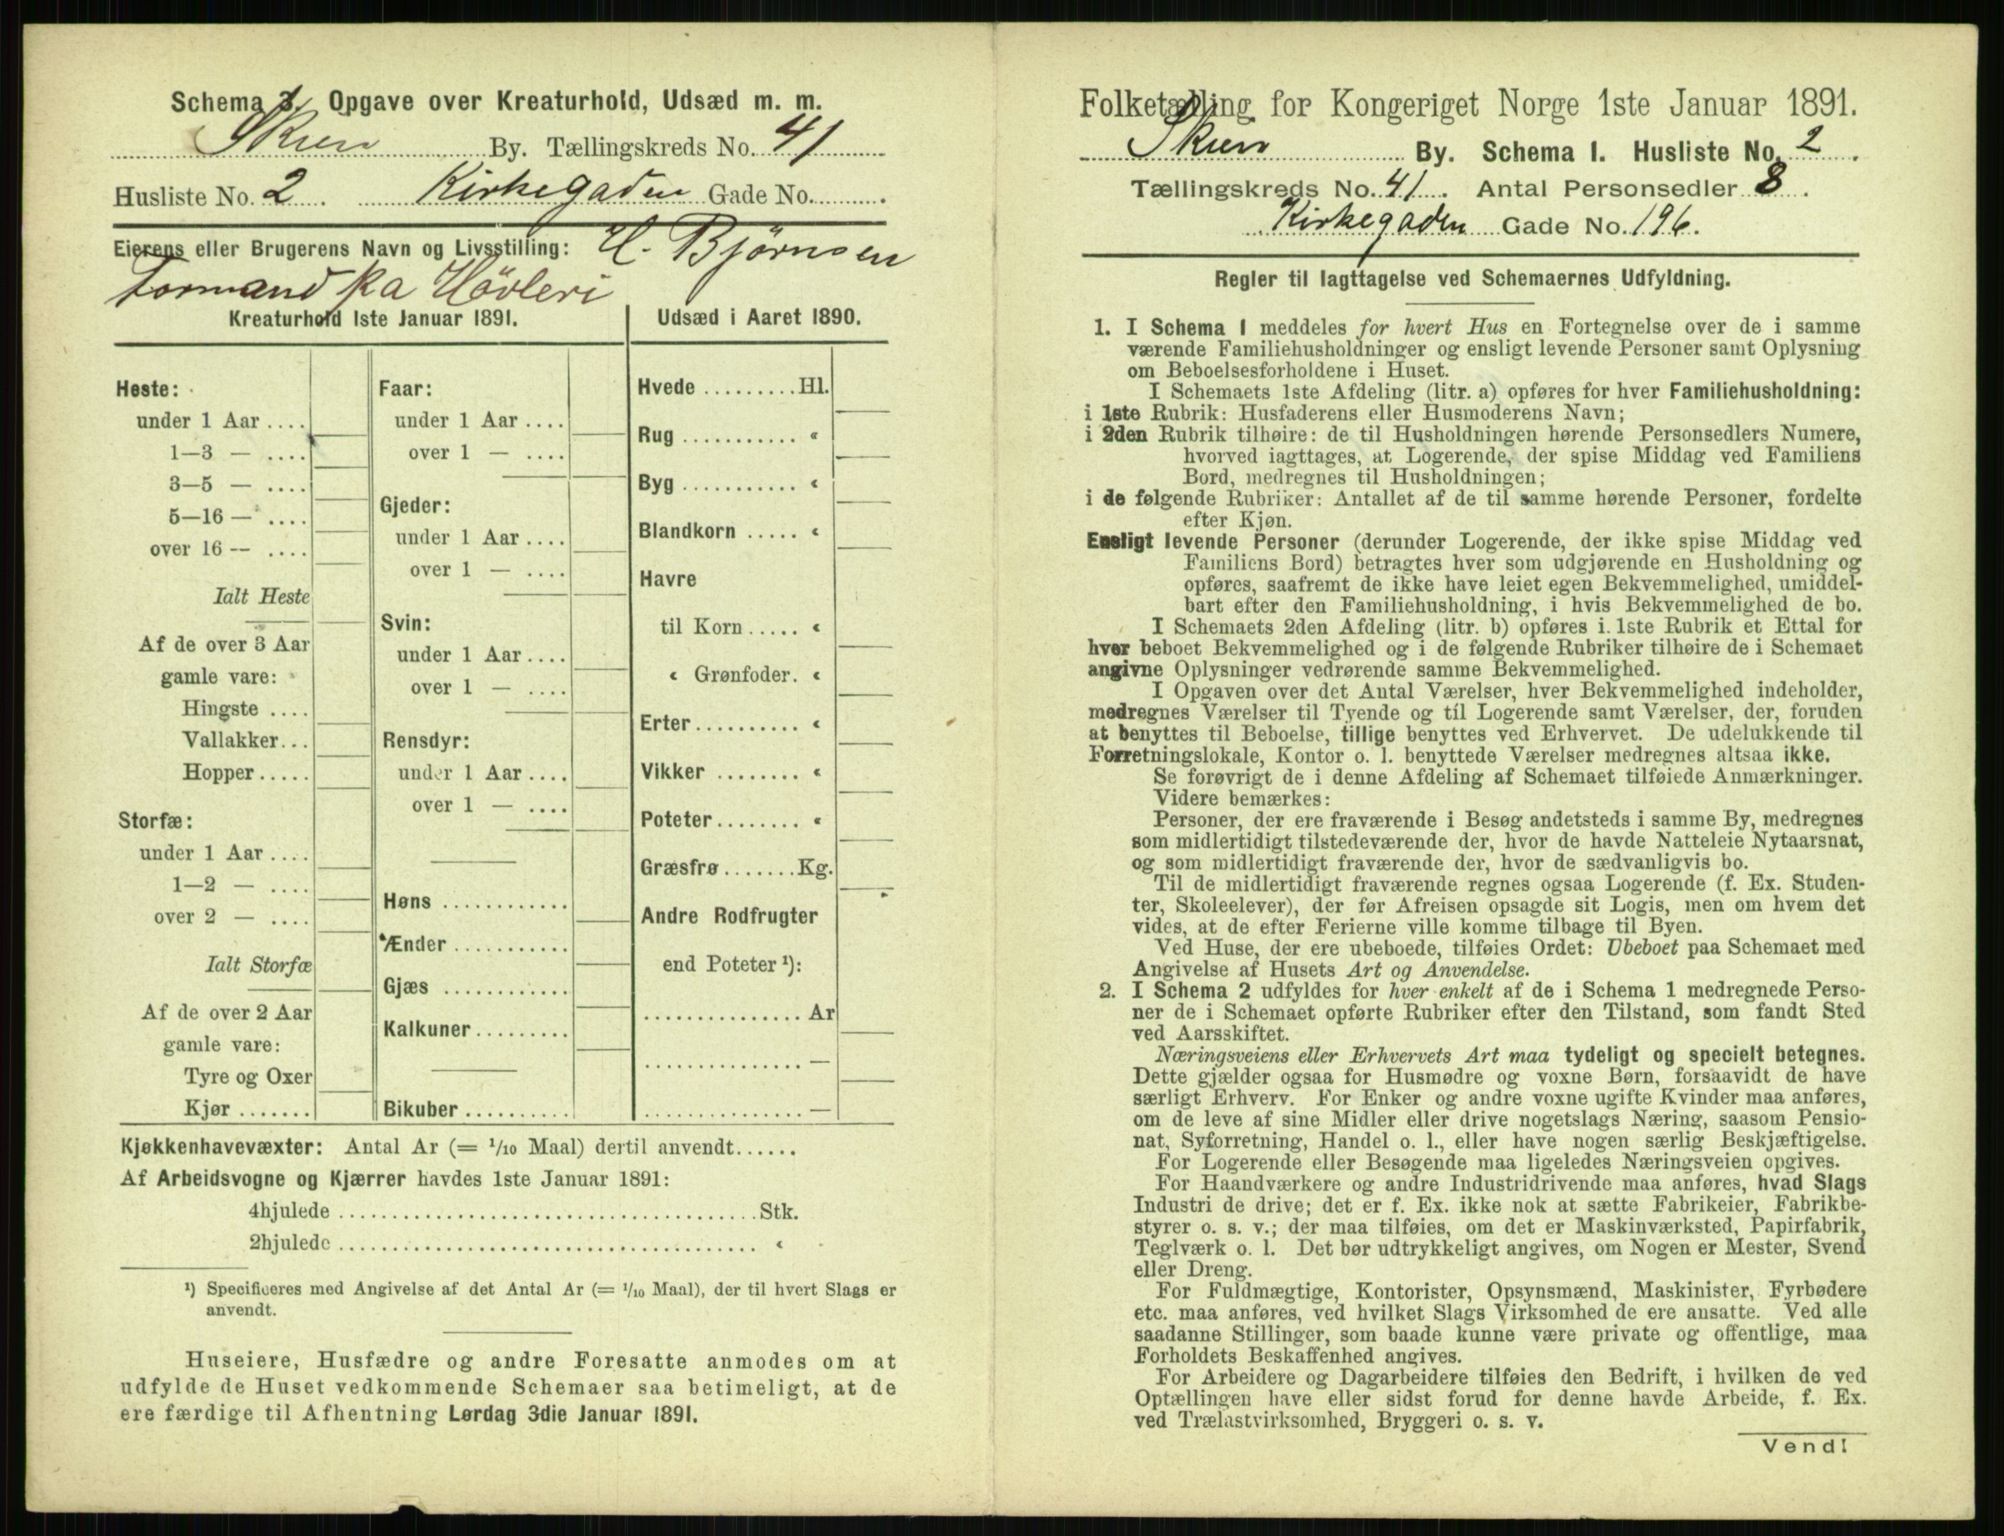 Schema 3. Opgave over Kreaturhold, Udsæd m. m.
Skien By. Tællingskreds No. 41
Husliste No. 2 Kirkegaden Gade No.
Eierens eller Brugerens Navn og Livsstilling: H. Bjørnsen
Formand paa Høvleri
Kreaturhold 1ste Januar 1891.
Heste:
under 1 Aar ....
1—3 — ....
3—5 — ....
5—16 — ....
over 16 — ....
Ialt Heste
Af de over 3 Aar
gamle vare:
Hingste ....
Vallakker...
Hopper.....
Storfæ:
under 1 Aar ....
1—2 — ....
over 2 — ....
Ialt Storfæ
Af de over 2 Aar
gamle vare:
Tyre og Oxer
Kjør.......
Faar:
under 1 Aar ....
over 1 — ....
Gjeder:
under 1 Aar ....
over 1 — ....
Svin:
under 1 Aar ....
over 1 — ....
Rensdyr:
under 1 Aar ....
over 1 — ....
Høns ............
Ænder...........
Gjæs ............
Kalkuner.........
Bikuber..........
Udsæd i Aaret 1890.
Hvede .........Hl.
Rug ........... «
Byg ........... «
Blandkorn ..... «
Havre
til Korn ..... «
« Grønfoder. «
Erter.......... «
Vikker ........ «
Poteter........ «
Græsfrø .......Kg.
Andre Rodfrugter
end Poteter ¹):
...............Ar
............... —
............... —
Kjøkkenhavevæxter: Antal Ar (= 1/10 Maal) dertil anvendt......
Af Arbeidsvogne og Kjærrer havdes 1ste Januar 1891:
4hjulede ........................................Stk.
2hjulede ........................................ «
¹) Specificeres med Angivelse af det Antal Ar (= 1/10 Maal), der til hvert Slags er
anvendt.
Huseiere, Husfædre og andre Foresatte anmodes om at
udfylde de Huset vedkommende Schemaer saa betimeligt, at de
ere færdige til Afhentning Lørdag 3die Januar 1891.
Folketælling for Kongeriget Norge 1ste Januar 1891.
Skien By. Schema 1. Husliste No. 2.
Tællingskreds No. 41. Antal Personsedler 8.
Kirkegaden Gade No. 196.
Regler til Iagttagelse ved Schemaernes Udfyldning.
1. I Schema 1 meddeles for hvert Hus en Fortegnelse over de i samme
værende Familiehusholdninger og ensligt levende Personer samt Oplysning
om Beboelsesforholdene i Huset.
I Schemaets 1ste Afdeling (litr. a) opføres for hver Familiehusholdning:
i 1ste Rubrik: Husfaderens eller Husmoderens Navn;
i 2den Rubrik tilhøire: de til Husholdningen hørende Personsedlers Numere,
hvorved iagttages, at Logerende, der spise Middag ved Familiens
Bord, medregnes til Husholdningen;
i de følgende Rubriker: Antallet af de til samme hørende Personer, fordelte
efter Kjøn.
Ensligt levende Personer (derunder Logerende, der ikke spise Middag ved
Familiens Bord) betragtes hver som udgjørende en Husholdning og
opføres, saafremt de ikke have leiet egen Bekvemmelighed, umiddel-
bart efter den Familiehusholdning, i hvis Bekvemmelighed de bo.
I Schemaets 2den Afdeling (litr. b) opføres i 1ste Rubrik et Ettal for
hver beboet Bekvemmelighed og i de følgende Rubriker tilhøire de i Schemaet
angivne Oplysninger vedrørende samme Bekvemmelighed.
I Opgaven over det Antal Værelser, hver Bekvemmelighed indeholder,
medregnes Værelser til Tyende og til Logerende samt Værelser, der, foruden
at benyttes til Beboelse, tillige benyttes ved Erhvervet. De udelukkende til
Forretningslokale, Kontor o. l. benyttede Værelser medregnes altsaa ikke.
Se forøvrigt de i denne Afdeling af Schemaet tilføiede Anmærkninger.
Videre bemærkes:
Personer, der ere fraværende i Besøg andetsteds i samme By, medregnes
som midlertidigt tilstedeværende der, hvor de havde Natteleie Nytaarsnat,
og som midlertidigt fraværende der, hvor de sædvanligvis bo.
Til de midlertidigt fraværende regnes ogsaa Logerende (f. Ex. Studen-
ter, Skoleelever), der før Afreisen opsagde sit Logis, men om hvem det
vides, at de efter Ferierne ville komme tilbage til Byen.
Ved Huse, der ere ubeboede, tilføies Ordet: Ubeboet paa Schemaet med
Angivelse af Husets Art og Anvendelse.
2. I Schema 2 udfyldes for hver enkelt af de i Schema 1 medregnede Perso-
ner de i Schemaet opførte Rubriker efter den Tilstand, som fandt Sted
ved Aarsskiftet.
Næringsveiens eller Erhvervets Art maa tydeligt og specielt betegnes.
Dette gjælder ogsaa for Husmødre og voxne Børn, forsaavidt de have
særligt Erhverv. For Enker og andre voxne ugifte Kvinder maa anføres,
om de leve af sine Midler eller drive nogetslags Næring, saasom Pensio-
nat, Syforretning, Handel o. l., eller have nogen særlig Beskjæftigelse.
For Logerende eller Besøgende maa ligeledes Næringsveien opgives.
For Haandværkere og andre Industridrivende maa anføres, hvad Slags
Industri de drive; det er f. Ex. ikke nok at sætte Fabrikeier, Fabrikbe-
styrer o. s. v.; der maa tilføies, om det er Maskinværksted, Papirfabrik,
Teglværk o. l. Det bør udtrykkeligt angives, om Nogen er Mester, Svend
eller Dreng.
For Fuldmægtige, Kontorister, Opsynsmænd, Maskinister, Fyrbødere
etc. maa anføres, ved hvilket Slags Virksomhed de ere ansatte. Ved alle
saadanne Stillinger, som baade kunne være private og offentlige, maa
Forholdets Beskaffenhed angives.
For Arbeidere og Dagarbeidere tilføies den Bedrift, i hvilken de ved
Optællingen have eller sidst forud for denne havde Arbeide, f. Ex.
ved Trælastvirksomhed, Bryggeri o. s. v.
Vend!